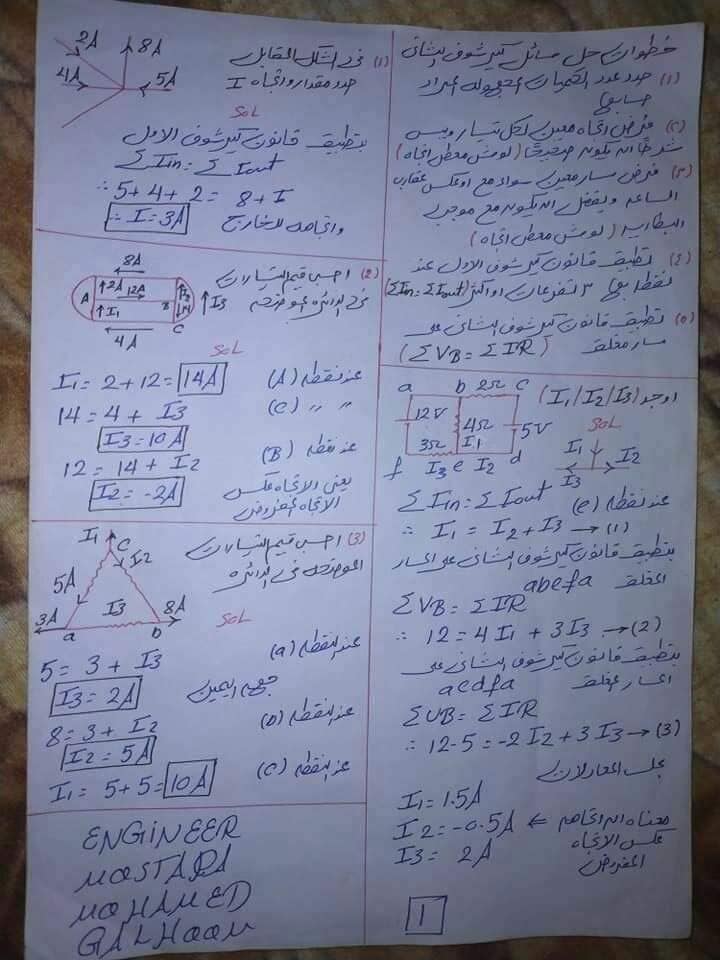 خطوات حل مسائل كيرشوف الثانى
(١) حدد عدد الكميات المجهوله المراد
حسابها
(٢) فرض اتجاه معين لكل تيار وليس
شرطا انه يكون صحيحا (لو مش معطى اتجاه)
(٣) فرض مسار معين سواء مع او عكس عقارب
الساعه ويفضل ان يكون مع موجب
البطاريه (لو مش معطى اتجاه)
(٤) تطبيق قانون كيرشوف الاول عند
نقطه بها ٣ تفرعات او اكثر (ΣIin = ΣIout)
(٥) تطبيق قانون كيرشوف الثانى على
مسار مغلق (ΣVB = ΣIR)
اوجد (I1/I2/I3)
a b 2Ω c
12V 4Ω 5V
3Ω I1
f I3 e I2 d
SOL
I1
I2
I3
عند نقطه (e) ΣIin = ΣIout
∴ I1 = I2 + I3 → (1)
بتطبيق قانون كيرشوف الثانى على المسار
المغلق abefa
ΣVB = ΣIR
∴ 12 = 4I1 + 3I3 → (2)
بتطبيق قانون كيرشوف الثانى على
المسار المغلق acdfa
ΣVB = ΣIR
∴ 12-5 = -2I2 + 3I3 → (3)
بحل المعادلات
I1 = 1.5A
I2 = -0.5A ⇐ معناه ان اتجاهه
عكس الاتجاه
المفروض
I3 = 2A
1
(1) فى الشكل المقابل
حدد مقدار واتجاه I
2A 8A
4A 5A
SOL
بتطبيق قانون كيرشوف الاول
ΣIin = ΣIout
∴ 5 + 4 + 2 = 8 + I
∴ I = 3A واتجاهه للخارج
(2) احسب قيم التيارات
فى الدائره الموضحه
8A
2A 12A I2
A I1 B 14 I3
C
4A
SOL
عند نقطه (A) I1 = 2 + 12 = 14A
〃 〃 (C) 14 = 4 + I3
I3 = 10A
عند نقطه (B) 12 = 14 + I2
I2 = -2A يعنى الاتجاه عكس
الاتجاه المفروض
(3) احسب قيم التيارات
الموضحه فى الدائره
I1 C I2
5A
3A I3 8A
a b
SOL
عند النقطه (a) 5 = 3 + I3
I3 = 2A جهه اليمين
عند النقطه (b) 8 = 3 + I2
I2 = 5A
عند النقطه (C) I1 = 5 + 5 = 10A
ENGINEER
MOSTAFA
MOHAMED
GALHOOM